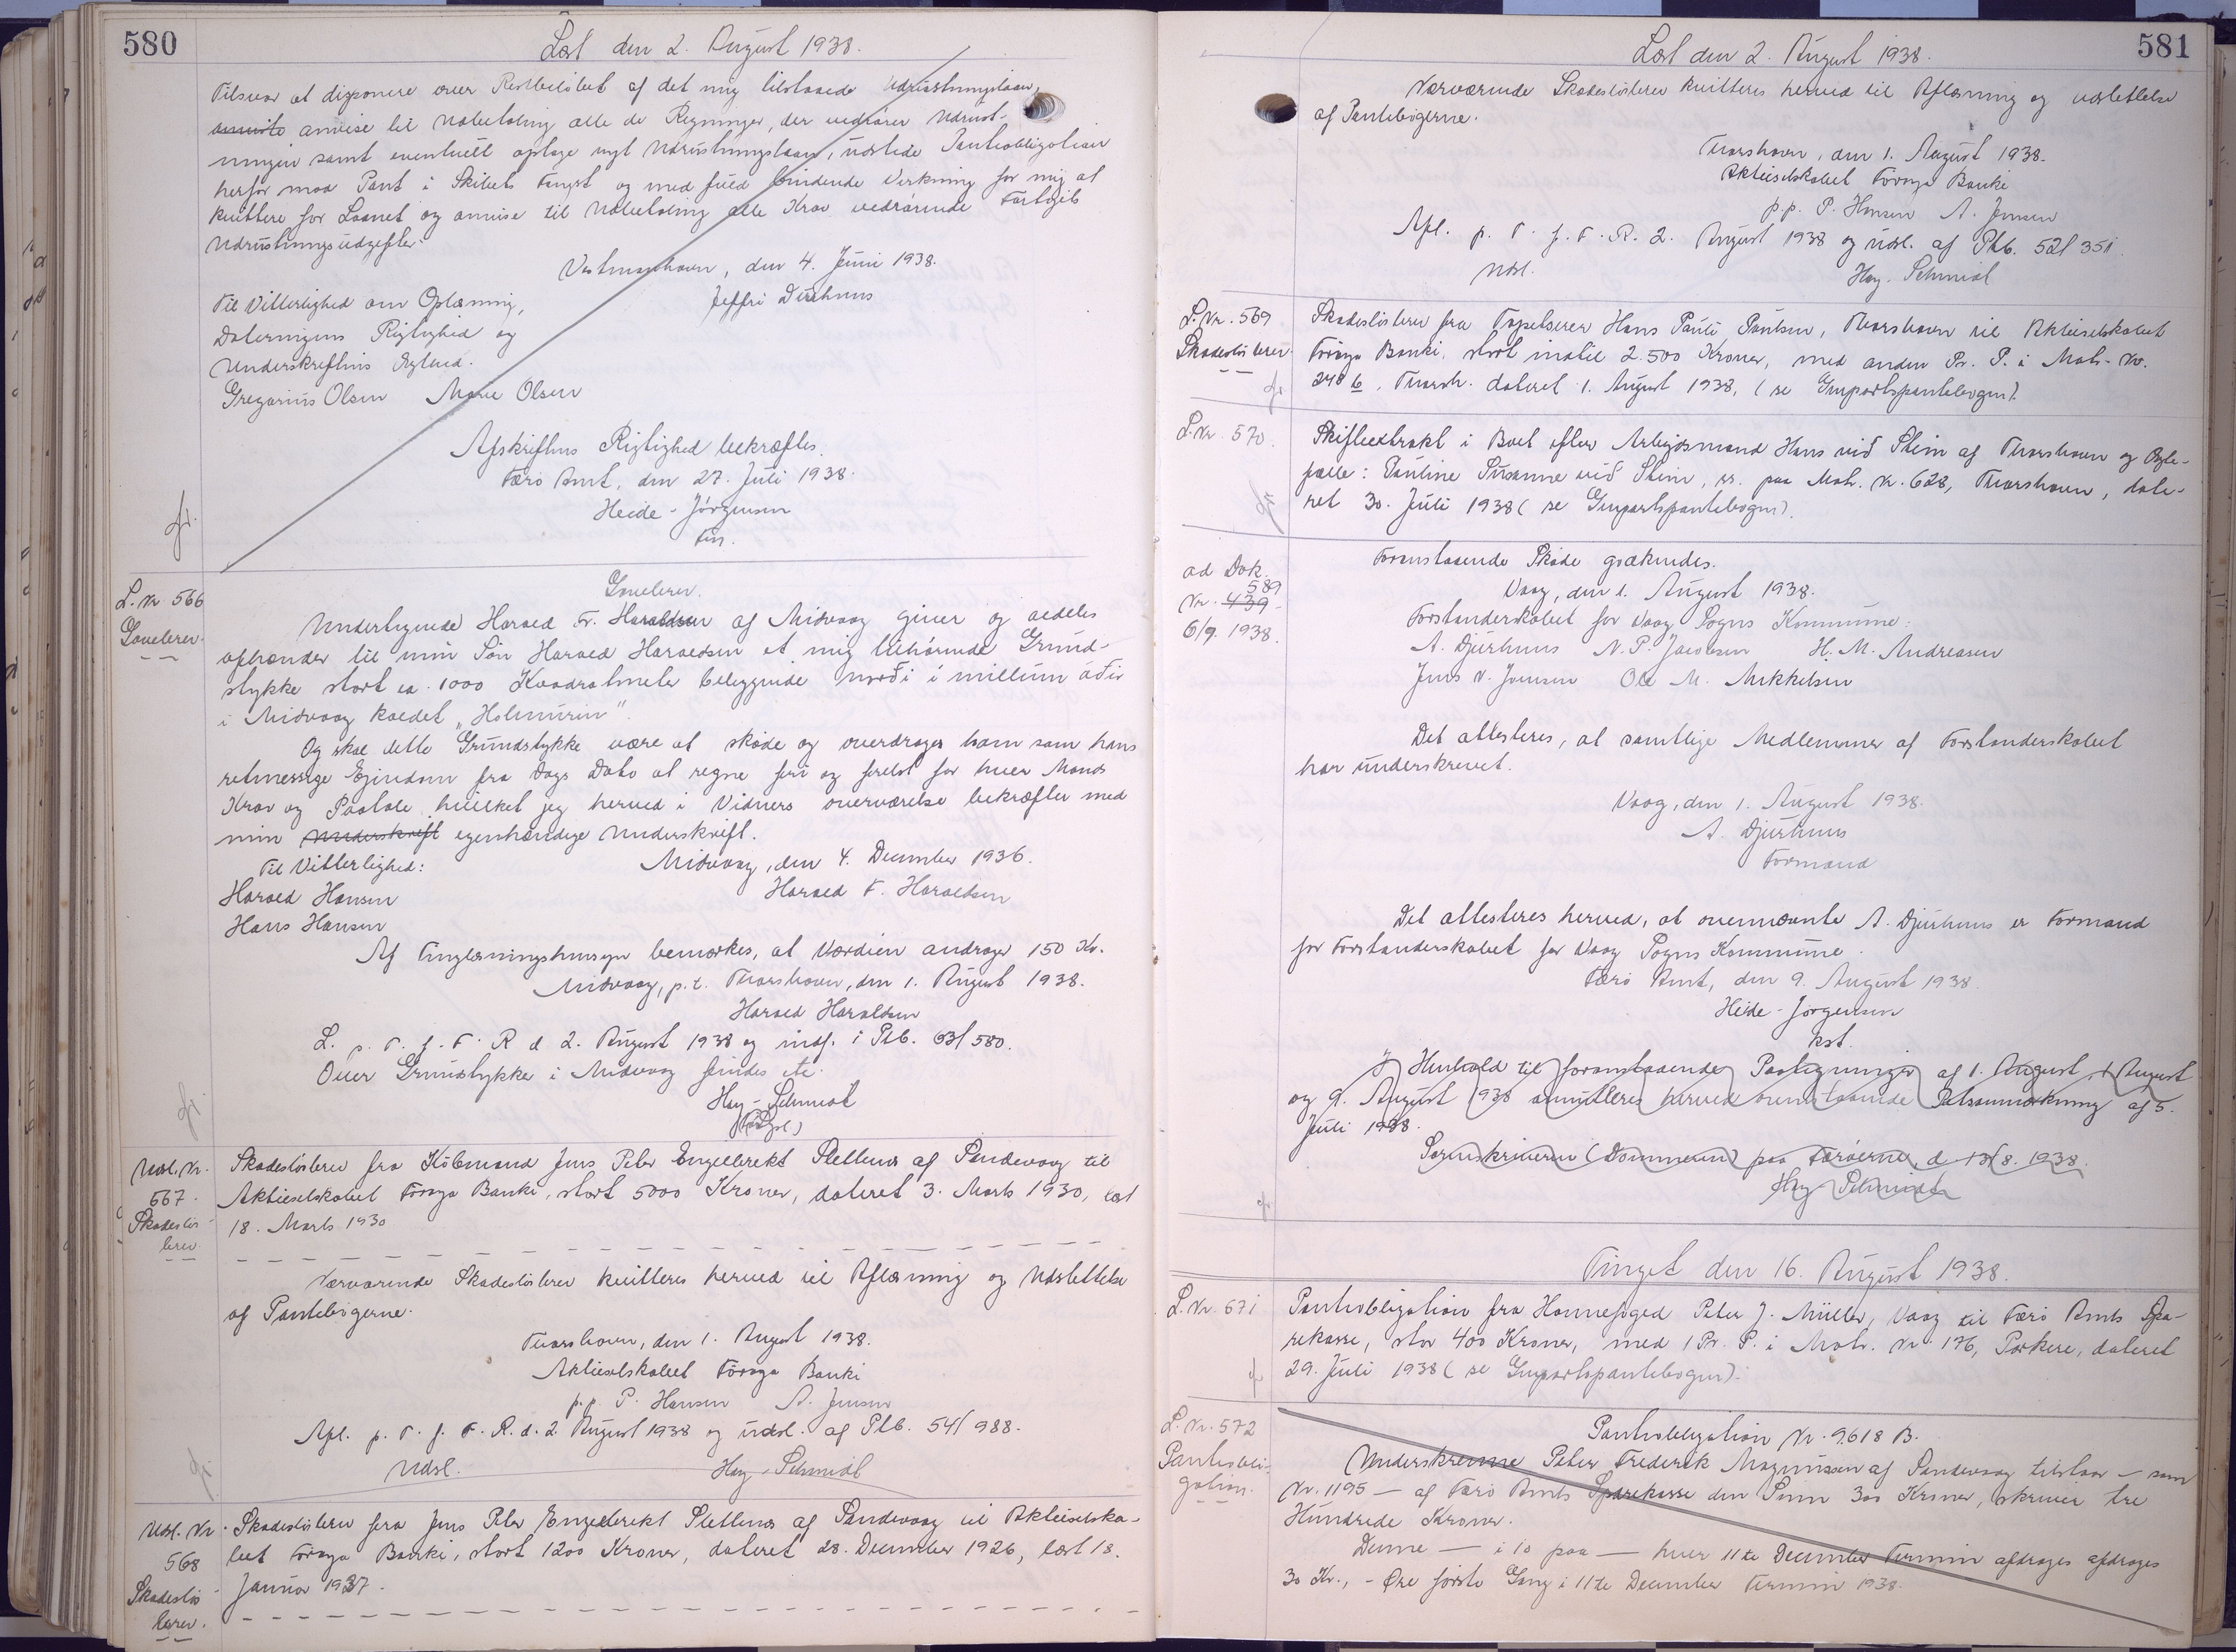 580
Læst den 2. August 1938.
Tilsvar at disponere over Restbeløbet af det mig tilstaaede Udrustningslaan,
anvise til Udbetaling alle de Regninger, der vedrører Udrust-
ningen samt eventuelt optage nyt Udrustningslaan, udstede Panteobligation
herfor mod Pant i Skibets Fangst og med fuld bindende Virkning for mig at
kvittere for Laanet og anvise til Udbetaling alle Krav vedrørende Fartøjets
Udrustningsudgifter.
Vestmanhavn, den 4. Juni 1938.
Til Vitterlighed om Oplæsning,
Dateringens Rigtighed og
Underskriftens Ægthed.
Gregorius Olsen Marie Olsen
Afskriftens Rigtighed bekræftes.
Færø Amt, den 27. Juli 1938.
Heide-Jørgensen
L. Nr 566
Gavebrev.
Gavebrev.
Undertegnede Harald Fr. Haraldsen af Midvaag giver og aldeles
afhænder til min Søn Harald Haraldsen et mig tilhørende Grund-
stykke stort ca. 1000 Kvadratmeter beliggende norði í millum áðir
i Midvaag kaldet „Holmurin".
Og skal dette Grundstykke være at skøde og overdrages ham som hans
retmessige Ejendom fra Dags Dato at regne fri og frelst for hver Mands
Krav og Paatale hvilket jeg herved i Vidners overværelse bekræfter med
min Underskrift egenhændige Underskrift.
Til Vitterlighed: Midvaag, den 4. December 1936.
Harald Hansen Harald F. Haraldsen
Hans Hansen
Af Tinglæsningshensyn bemærkes, at Værdien andrager 150 Kr.
Midvaag, p.t. Thorshavn, den 1. August 1938.
Harald Haraldsen
L. p. T. f. F. R d 2. August 1938 og indf. i Ptb. 63/580.
Over Grundstykke i Midvaag findes ete.
Hay-Schmidt
Udsl. Nr.
567.
Skadesløs-
brev.
Skadesløsbrev fra Købmand Jens Peter Engelbrekt Slettenes af Sandevaag til
Aktieselskabet Føroya Banki, stort 5000 Kroner, dateret 3. Marts 1930, læst
18. Marts 1930
Nærværende Skadesløsbrev kvitteres herved til Aflæsning og Udslettelse
af Pantebøgerne.
Thorshavn, den 1. August 1938.
Aktieselskabet Føroya Banki
p.p. P. Hansen A. Jensen
Afl. p. T. f. F. R. d. 2. August 1938 og udsl. af Ptb. 54/988.
Udsl. Hay-Schmidt
Udsl. Nr.
568
Skadesløs
brev.
Skadesløsbrev fra Jens Peter Engelbrekt Slettenes af Sandevaag til Aktieselska-
bet Føroya Banki, stort 1200 Kroner, dateret 28. December 1926, læst 18.
Januar 1927.
581
Læst den 2. August 1938.
Nærværende Skadesløsbrev kvitteres herved til Aflæsning og udslettelse
af Pantebøgerne.
Thorshavn, den 1. August 1938.
Aktieselskabet Føroya Banki
p.p. P. Hansen A. Jensen
Afl. p. T. f. F. R. 2. August 1938 og udsl. af Ptb. 52/351.
Udsl. Hay-Schmidt
L. Nr. 569
Skadesløsbrev.
Skadesløsbrev fra Tapetserer Hans Pauli Poulsen, Thorshavn til Aktieselskabet
Føroya Banki, stort indtil 2.500 Kroner, med anden Pr. P. i Matr. Nr.
248 b, Thorsh. dateret 1. August 1938, (se Genpartspantebogen).
L. Nr. 570.
Skifteextrakt i Boet efter Arbejdsmand Hans við Stein af Thorshavn og Ægte-
fælle: Pauline Susanne við Stein, vr. paa Matr. Nr. 628, Thorshavn, date-
ret 30. Juli 1938 (se Genpartspantebogen).
ad Dok.
589
Nr. 439
6/9. 1938.
Foranstaaende Skøde godkendes.
Vaag, den 1. August 1938.
Forstanderskabet for Vaag Sogns Kommune:
A. Djurhuus N. P. Jacobsen H. M. Andreasen
Jens V. Joensen Ole M. Mikkelsen
Det attesteres, at samtlige Medlemmer af Forstanderskabet
har underskrevet.
Vaag, den 1. August 1938.
A. Djurhuus
Formand
Det attesteres herved, at ovennævnte A. Djurhuus er Formand
for Forstanderskabet for Vaag Sogns Kommune.
Færø Amt, den 9. August 1938.
Heide-Jørgensen
kst.
I Henhold til foranstaaende Paategninger af 1. August, 1. August
og 9. August 1938 annulleres herved ovenstaaende Retsanmærkning af 5.
Juli 1938.
Sorenskriveren (Dommeren) paa Færøerne, d. 13/8. 1938.
Hay Schmidt
Tinget den 16. August 1938.
L. Nr. 571
Pantobligation fra Havnefoged Peter J. Müller, Vaag til Færø Amts Spa-
rekasse, stor 400 Kroner, med 1 Pr. P. i Matr. Nr 176, Porkere, dateret
29. Juli 1938 (se Genpartspantebogen).
L. Nr. 572
Pantobli-
gation.
Pantobligation Nr. 9618 B.
Underskrevne Peter Frederik Magnussen af Sandevaag tilstaar — som
Nr. 1195 — af Færø Amts Sparekasse den Sum 300 Kroner, skriver tre
Hundrede Kroner.
Denne — i 10 paa — hver 11te December Termin afdrages afdrages
30 Kr., - Øre første Gang i 11te December Termin 1938.